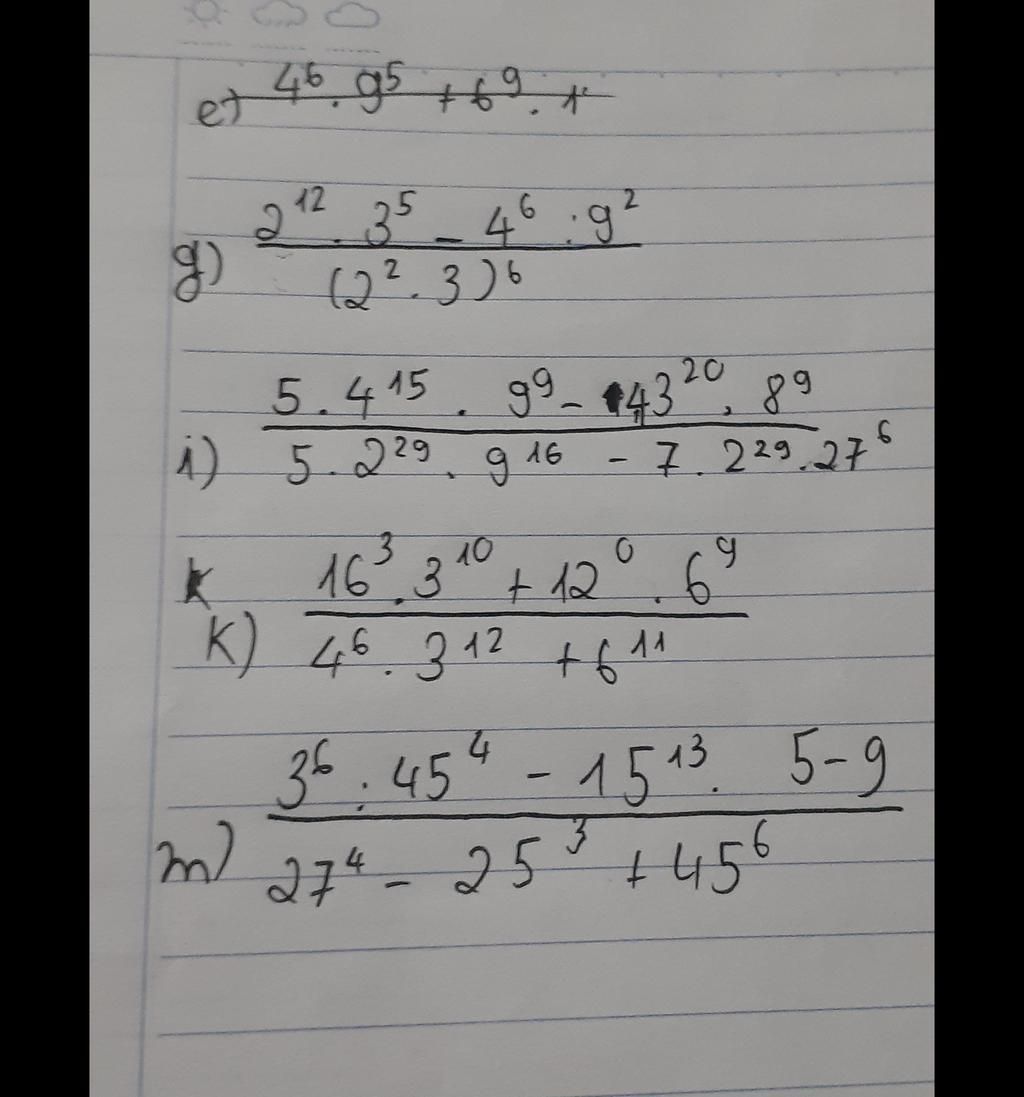 e) 4⁶ . 9⁵ + 6⁹ . 1
2¹² . 3⁵ - 4⁶ . 9²
g)
(2² . 3)⁶
5 . 4¹⁵ . 9⁹ - 43²⁰ . 8⁹
i) 5 . 2²⁹ . 9¹⁶ - 7 . 2²⁹ . 27⁶
k 16³ . 3¹⁰ + 12⁰ . 6⁹
K) 4⁶ . 3¹² + 6¹¹
3⁶ : 45⁴ - 15¹³ . 5-9
m) 27⁴ - 25³ + 45⁶